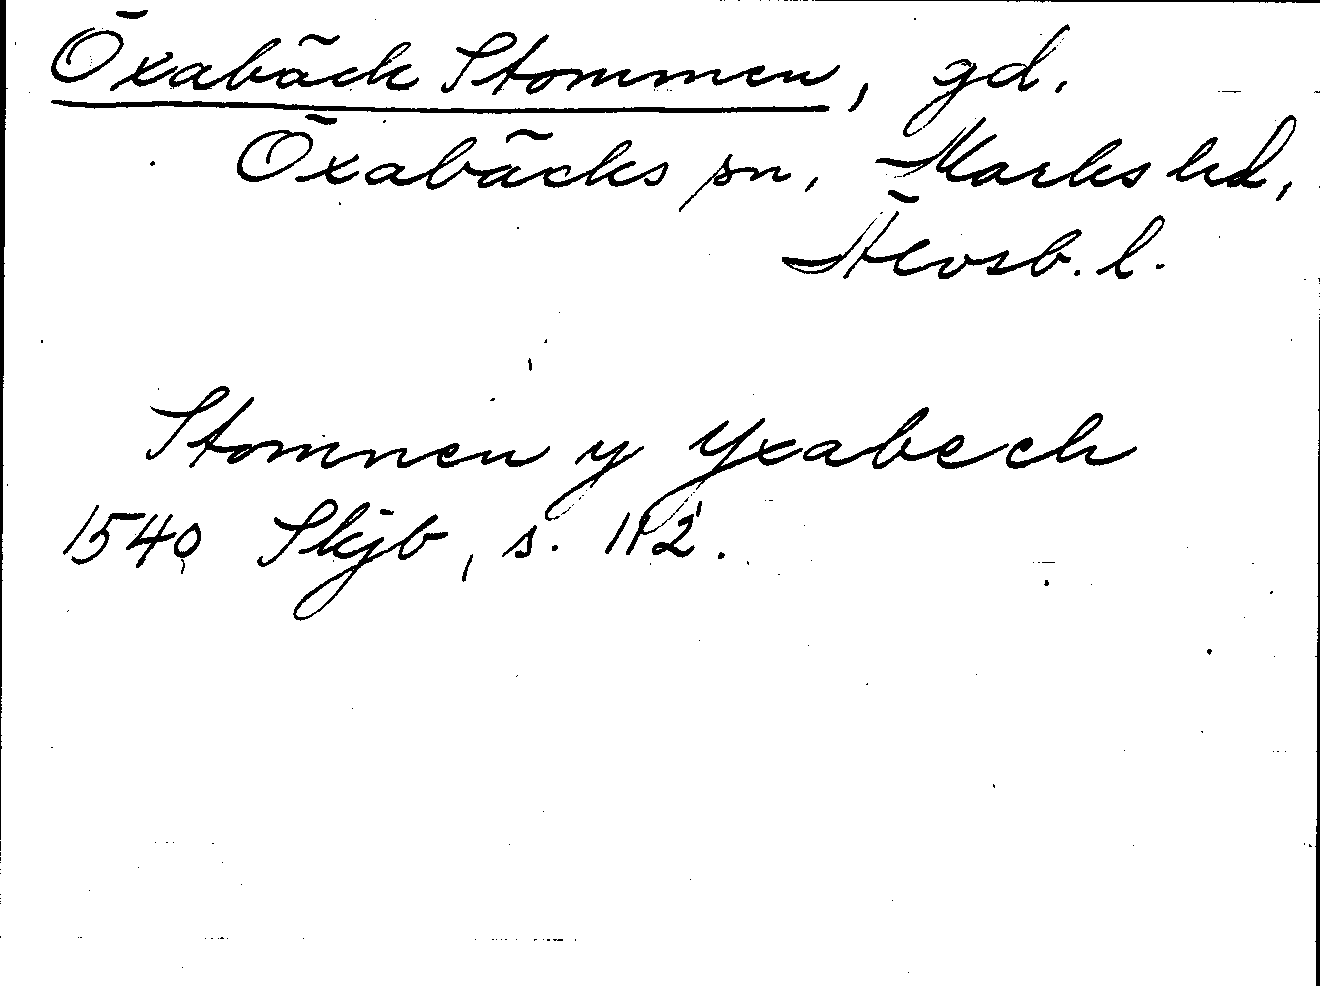 Öxabäck Stommen, gd.
Öxabäcks sn, Marks hd,
Älvsb. l.
Stomnen y Yxabech
1540 Skjb, s. 112.